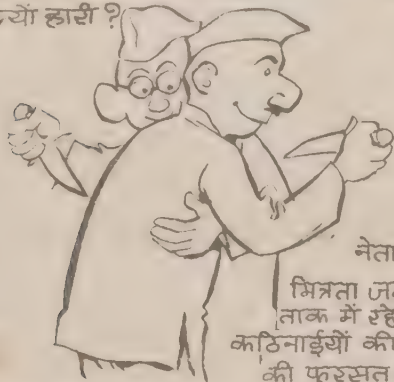 क्यों हारी ?
नेता
मित्रता ज
ताक में रहे
कठिनाईयों की
की फुरसत